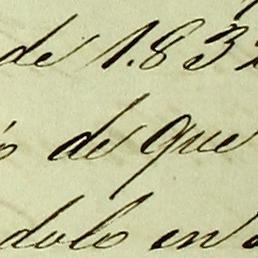 de 1.83
de que
dolo en